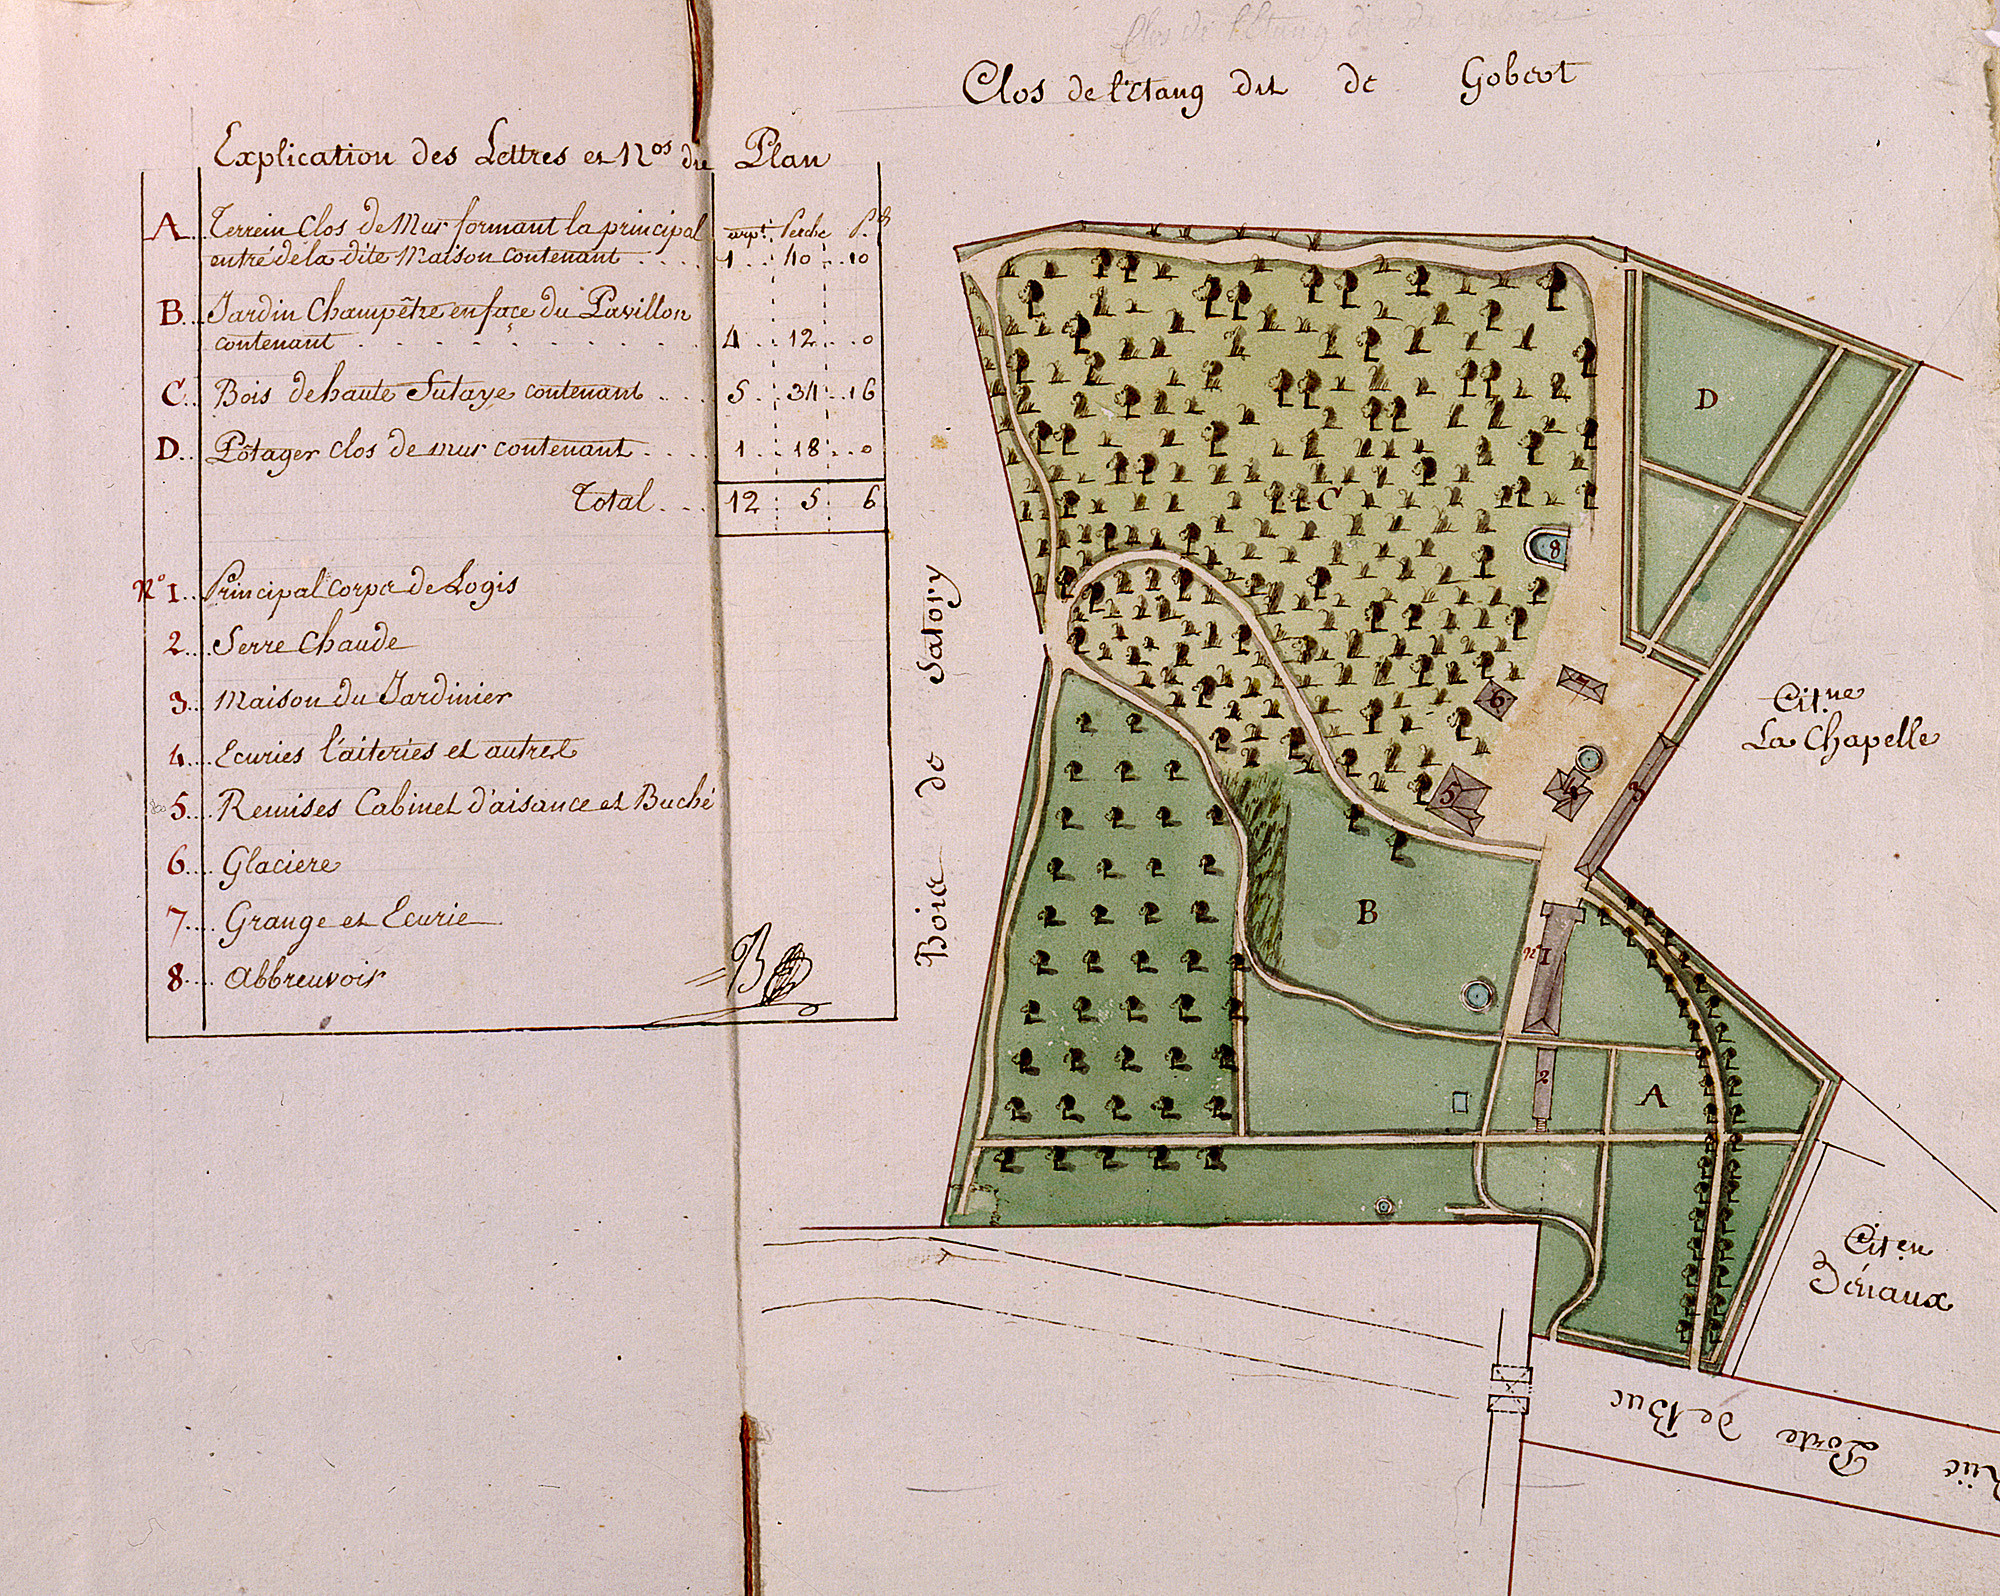 Clos de l'Etang dit de Gobert
Explication des Lettres et Nos du Plan
A.. Terrein Clos de Mur formant la principal arpt. Perche P.ds
entré de la dite Maison contenant . . . . 1 . . 40 . . 10
B... Jardin Champêtre enface du Pavillon
contenant . . . . . . . . . . 4 . . 12 . . 0
C.. Bois de haute Sutaye contenant . . . . 5 . . 34 . . 16
D.. Pôtager clos de mur contenant . . . . 1 . . 18 . . 0
Total . . . 12 5 6
No 1.. Principal corps de Logis
2.... Serre Chaude
3.. Maison du Jardinier
4.... Ecuries l'aiteries et autres
5.... Remises Cabinet d'aisance et Buché
6.... Glaciere
7.... Grange et Ecurie
8.... abbreuvoir
B
Bois de Satory
D
C
8
7
6
5
4
3
B
no 1
2
A
Cit.ne
La Chapelle
Cit.en
Rüe Porte de Buc